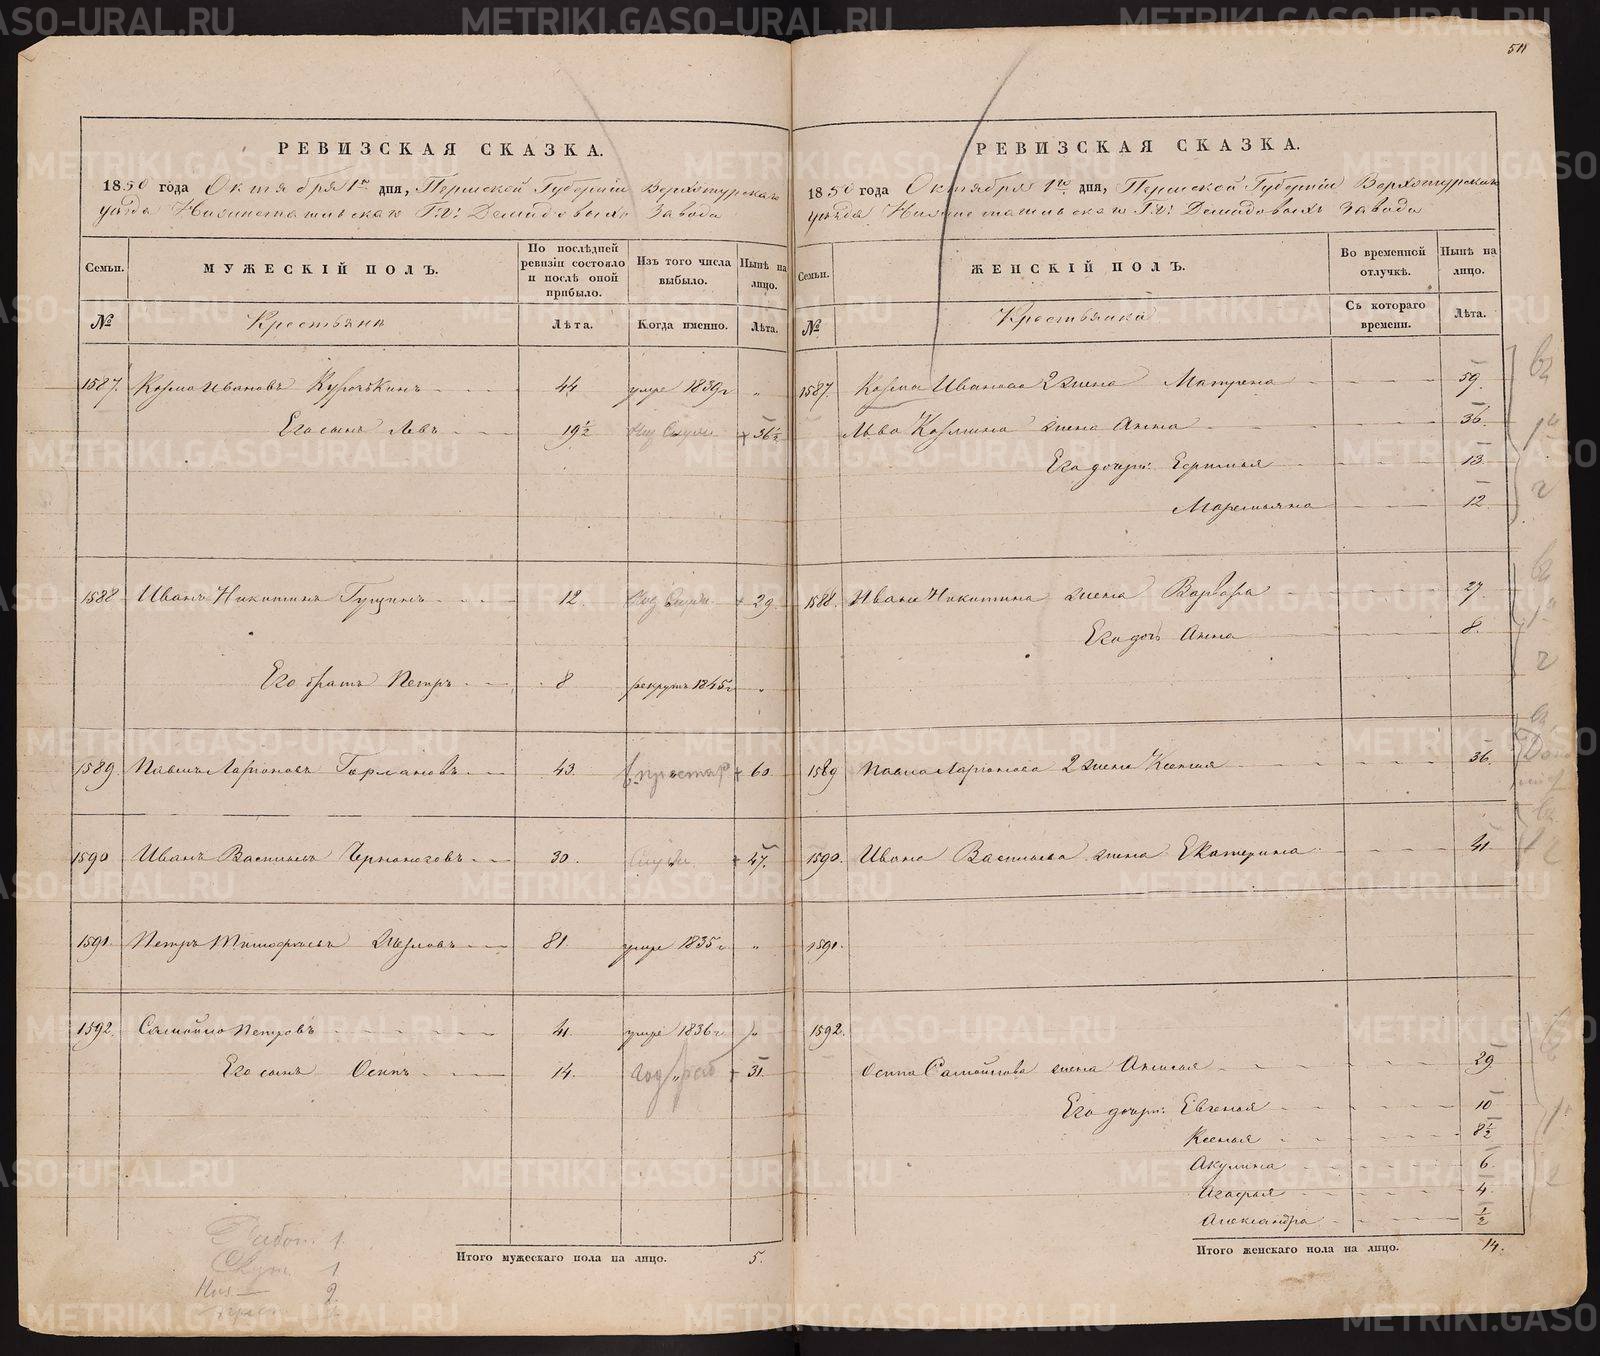 511
РЕВИЗСКАЯ СКАЗКА.
1850 года Октября 1го дня, Пермской Губернiи Верхотурскаго
уѣзда Нижнетагильскаго Г.г. Демидовыхъ завода
Семьи.
МУЖЕСКIЙ ПОЛЪ.
По послѣдней ревизiи состояло и послѣ оной прибыло.
Изъ того числа выбыло.
Нынѣ на лицо.
№
Крестьянъ
Лѣта.
Когда именно.
Лѣта.
1587. Козма Ивановъ Курочкинъ 44 умре 1839г "
Его сынъ Левъ 19½ 36½
1588 Иванъ Никитинъ Гущинъ 12. 29
Его братъ Петръ 8 рекрутъ 1845г "
1589. Павелъ Ларiоновъ 43. 60.
1590 Иванъ Васильевъ Черноноговъ 30. 47.
1591. Петръ Тимофѣевъ 81. умре 1835г "
1592. Самойло Петровъ 41. умре 1836г "
Его сынъ Осипъ 14. 31.
Итого мужескаго пола на лицо. 5.
РЕВИЗСКАЯ СКАЗКА.
1850 года Октября 1го дня, Пермской Губернiи Верхотурскаго
уѣзда Нижнетагильскаго Г.г. Демидовыхъ завода
Семьи.
ЖЕНСКIЙ ПОЛЪ.
Во временной отлучкѣ.
Нынѣ на лицо.
№
Крестьянки
Съ котораго времени.
Лѣта.
1587. Козмы Иванова 2 жена Матрена 59.
Льва Козмина жена Анна 36.
Его дочери: 13.
Маремьяна 12
1588. Ивана Никитина жена Варвара 27
Его дочь Анна 8.
1589 Павла Ларiонова 2 жена Ксенiя 36.
1590. Ивана Васильева жена Екатерина 41
1591.
1592.
Осипа Самойлова жена Анисья 29
Его дочери: Евгенья 10
Ксенья 8½
Акулина 6.
Агафья 4.
Александра ½
Итого женскаго пола на лицо. 14.
METRIKI.GASO-URAL.RU